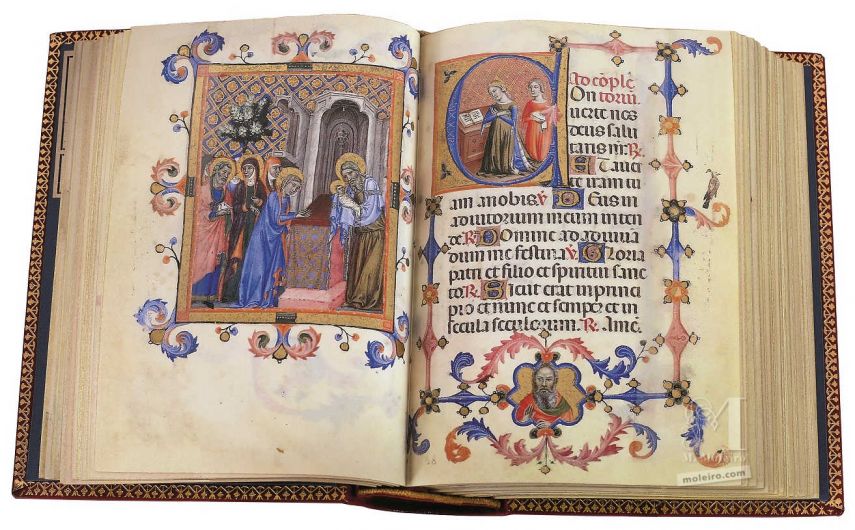 Ad cōplē
uerte nos
deus salu
taris nr̄. R.
Et auer
am a nobis V Deus in
adiutorium meum inten
de R Domine ad adiuua
dum me festina V Gloria
patri et filio et spiritui sanc
to R Sicut erat in princi
pio et nunc et semper et in
secula seculorum. R. Amē.
M
moleiro.com